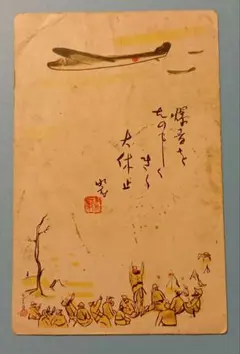 爆音を
たのもしく
きく
大休止